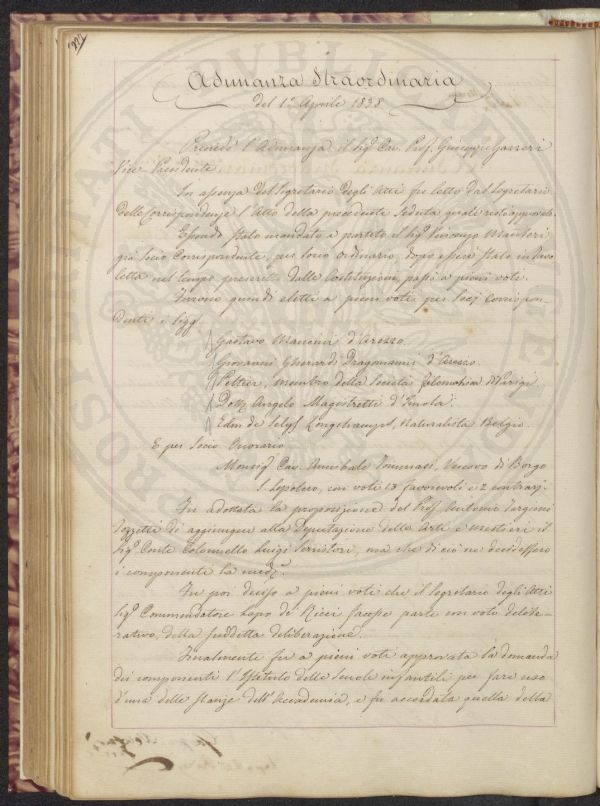 Adunanza Straordinaria
del 1° Aprile 1838
Presiedé l'Adunanza il Sigr Cav. Prof. Giuseppe Gazzeri
Vice Presidente
In assenza del Segretario degli Atti fu letto dal Segretario
delle Corrispondenze l'Atto della precedente Seduta quale restò approvato.
Essendo stato mandato a partito il Sigr Vincenzo Manteri
già Socio Corrispondente, per Socio Ordinario, dopo essere stato in tavo
letta nel tempo prescritto dalle Costituzioni, passò a pieni voti.
Furono quindi eletti a pieni voti per Socj Corrispon-
denti i Sigg.
Gaetano Mancini d'Arezzo.
Giovanni Gherardi Dragomanni d'Arezzo.
Peltier, membro della Società Filomatica di Parigi.
Dottr Angelo Magistretti d'Imola.
Edm. de Selys Longchamps, Naturalista Belgio.
E per Socio Onorario
Monsigr Cav. Annibale Tommasi, Vescovo di Borgo
S. Sepolcro, con voti 13 favorevoli e 2 contrarj.
Fu adottata la proposizione del Prof. Antonio Targioni
Tozzetti di aggiungere alla Deputazione delle Arti e mestieri il
Sigr Conte Colonnello Luigi Serristori, ma che di ciò ne decidessero
i componenti la medma
Fu poi deciso a pieni voti che il Segretario degli Atti
Sigr Commendatore Lapo de' Ricci facesse parte con voto delibe-
rativo, della suddetta deliberazione.
Finalmente fu a pieni voti approvata la domanda
dei componenti l'Istituto delle Scuole infantili per fare uso
d'una delle stanze dell'Accademia, e fu accordata quella della